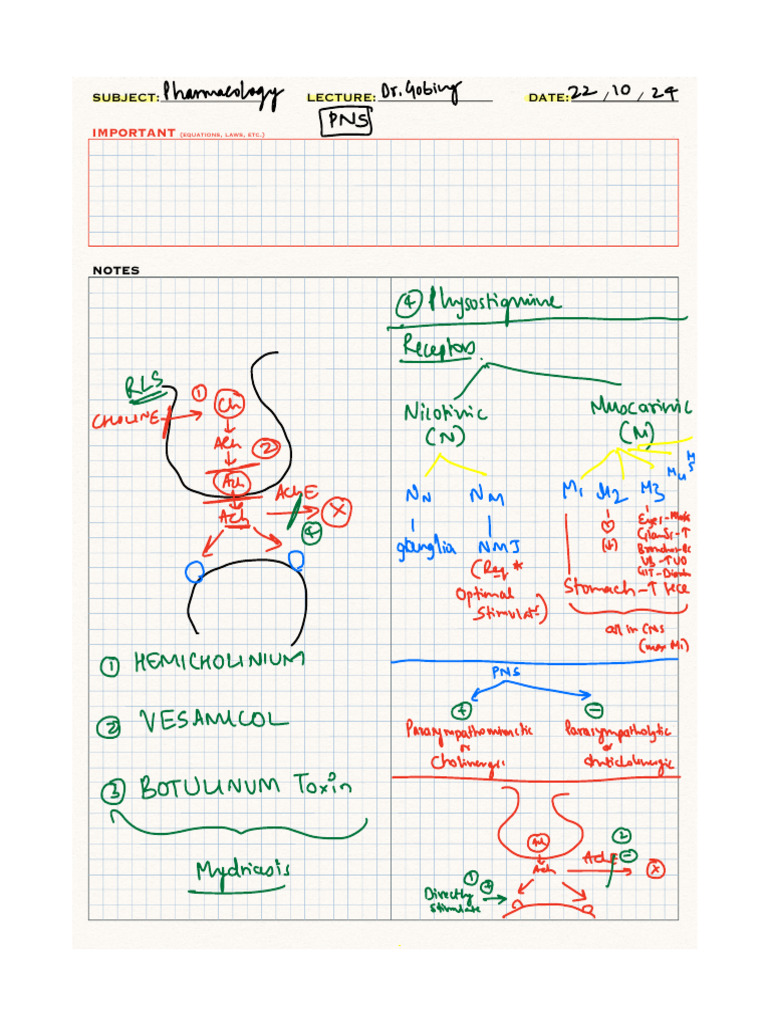 SUBJECT: Pharmacology LECTURE: Dr. Gobing DATE: 22, 10, 24
PNS
IMPORTANT (EQUATIONS, LAWS, ETC.)
NOTES
RLS
CHOLINE
1
Ch
ACh
2
Ach
AchE
X
Ach
4
1 HEMICHOLINIUM
2 VESAMICOL
3 BOTULINUM Toxin
Mydriasis
4 Physostigmine
Receptors
Nicotinic
(N)
Muscarinic
(M)
NN NM
M1 M2 M3 M4 M5
ganglia NMJ
(Req *
Optimal
Stimulatn)
(↓)
Eyes-
Glands-↑
GIT-
Stomach-↑
all in CNS
(max M1)
PNS
+
-
Parasympathomimetic
or
Cholinergic
Parasympatholytic
or
Anticholinergic
Ach
Ach
AchE
2
-
X
1 +
Directly
stimulate